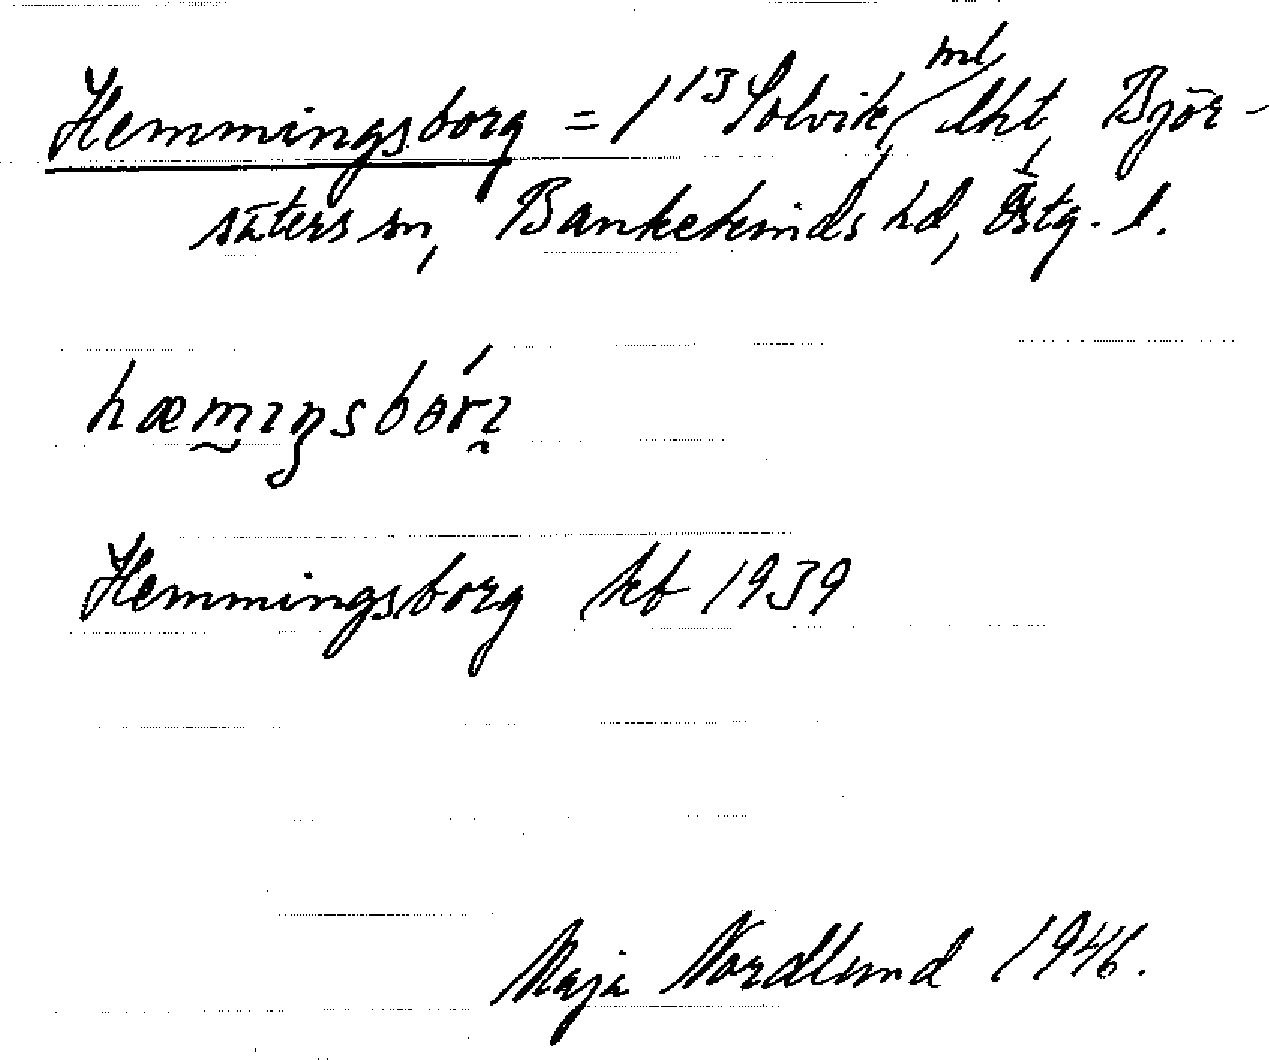 Hemmingsborg = 1¹³ Solvik, ml lht, Björ-
säters sn, Bankekinds hd, Östg. l.
Hemmingsborg kb 1939
Maja Nordlund 1946.